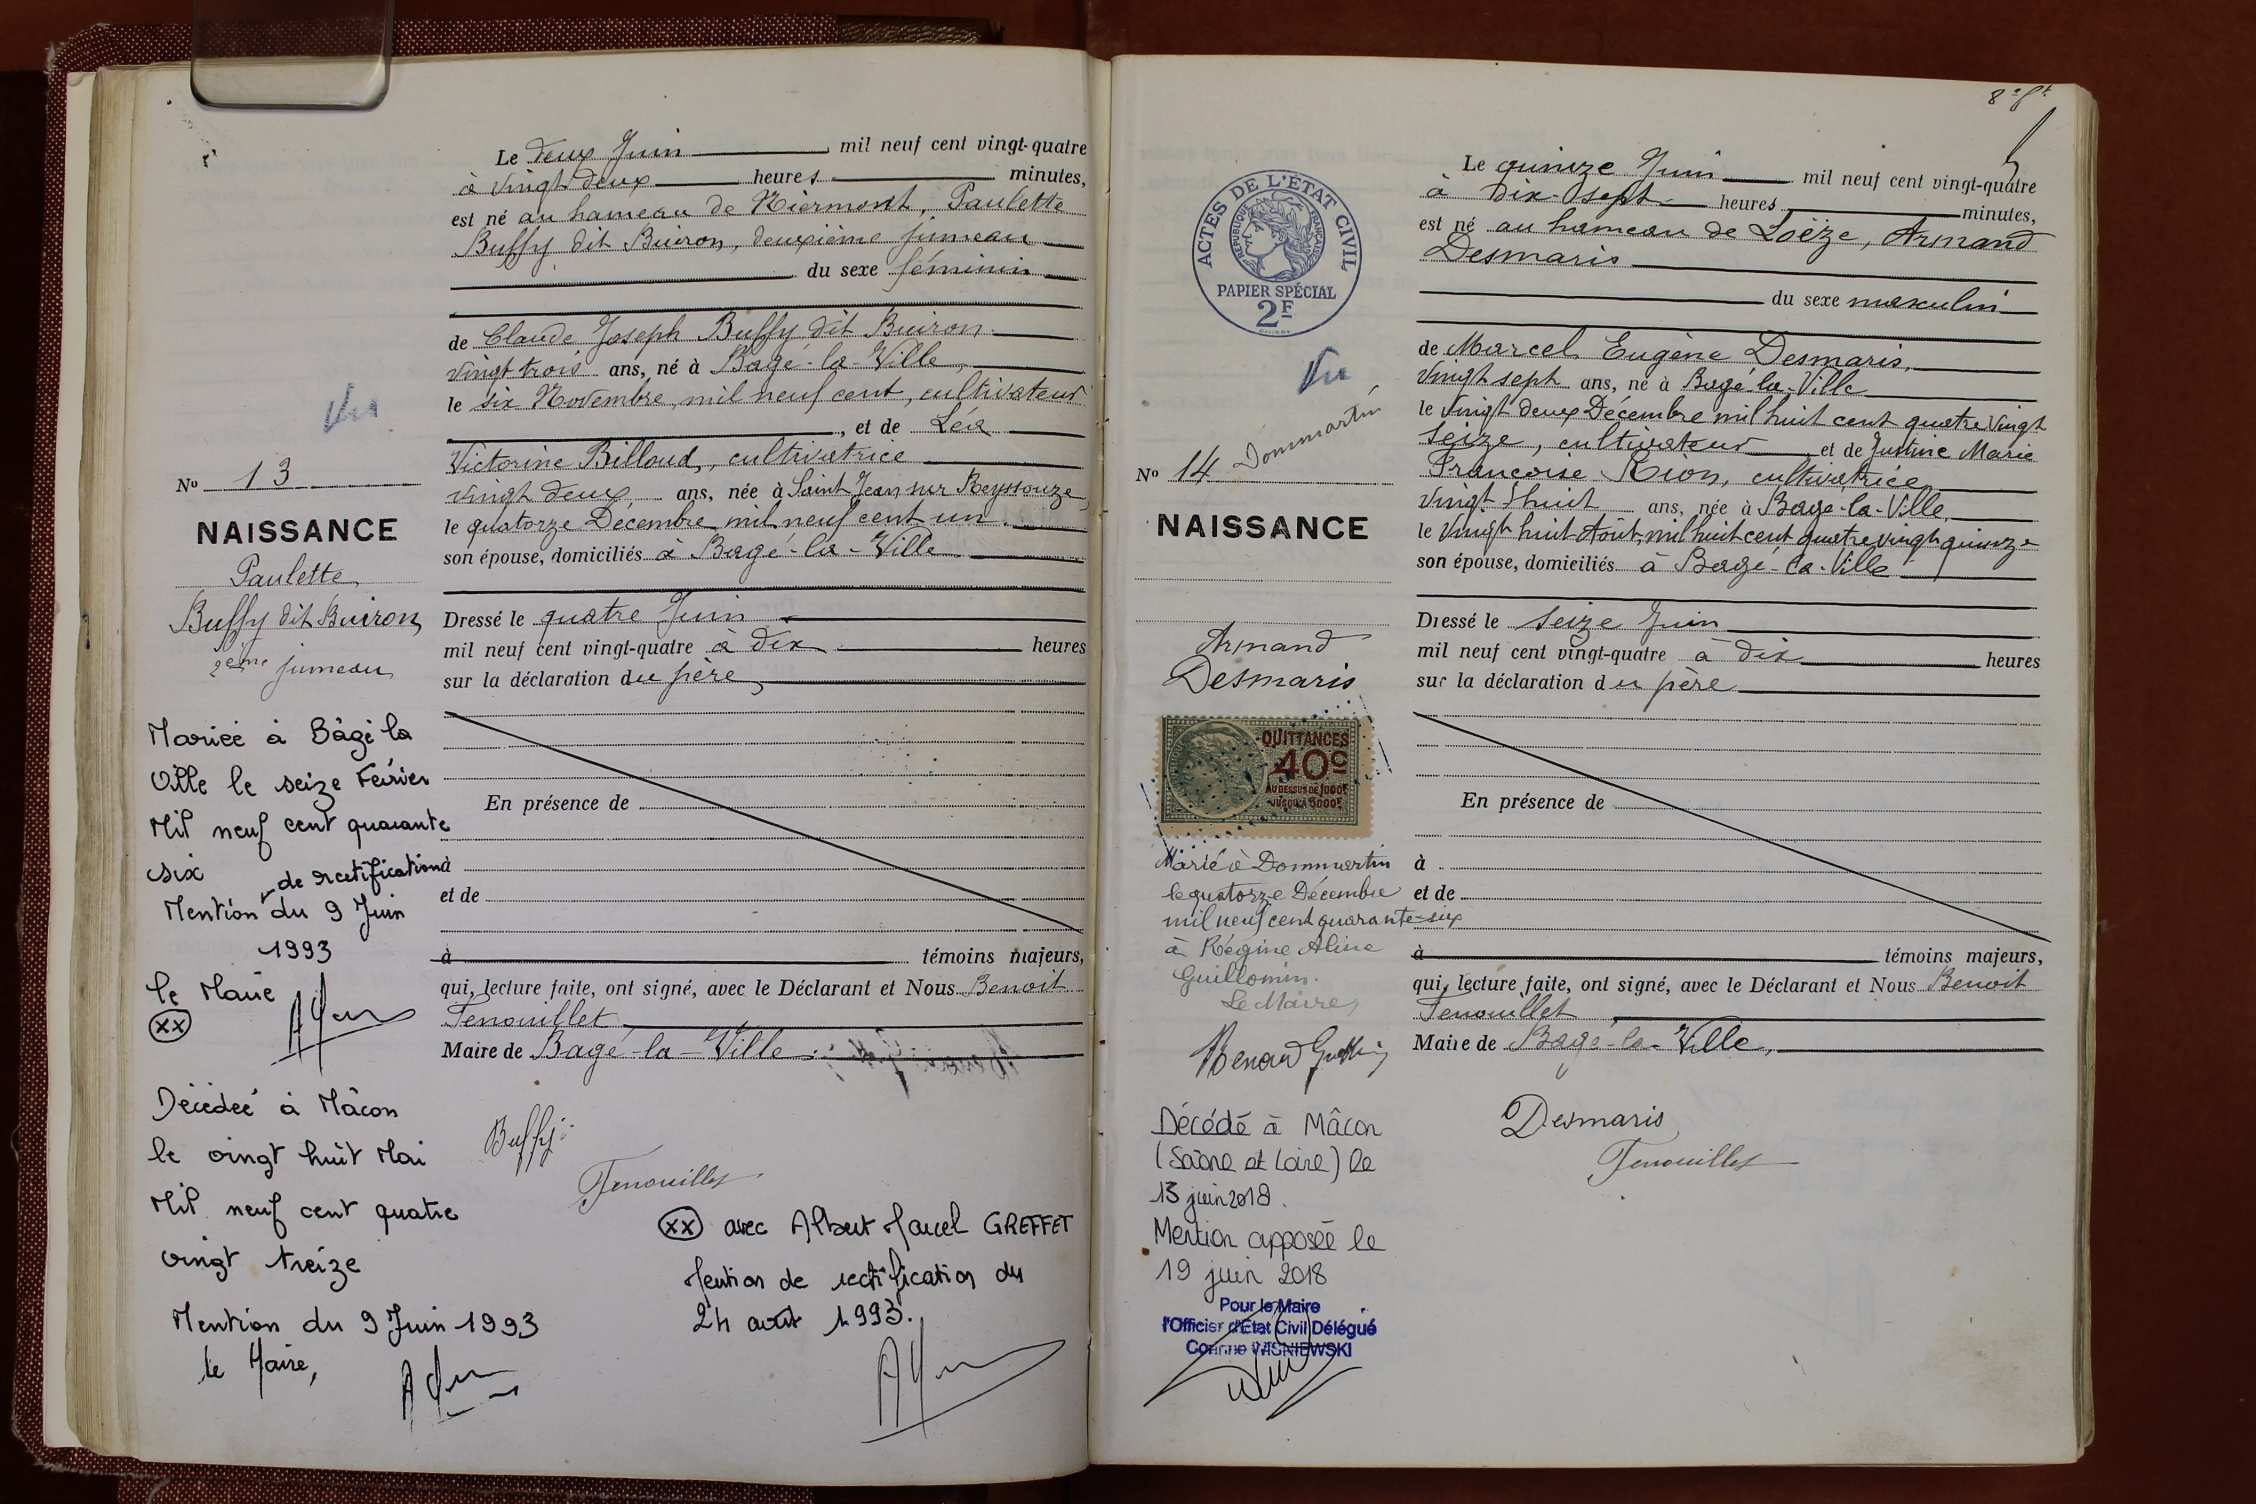 Le deux Juin mil neuf cent vingt-quatre
à vingt deux heures minutes,
est né au hameau de Niermont, Paulette
Buffy dit Buiron, deuxième jumeau
du sexe féminin
de Claude Joseph Buffy dit Buiron
vingt trois ans, né à Bagé-la-Ville,
le six Novembre, mil neuf cent, cultivateur
, et de Léa
Victorine Billoud, cultivatrice
vingt deux ans, née à Saint Jean sur Reyssouze,
le quatorze Décembre mil neuf cent un.
son épouse, domiciliés à Bagé-la-Ville
Dressé le quatre Juin
mil neuf cent vingt-quatre à dix heures
sur la déclaration du père
En présence de
à
et de
à témoins majeurs,
qui, lecture faite, ont signé, avec le Déclarant et Nous Benoit
Fenouillet
Maire de Bagé-la-Ville
Buffy
Fenouillet
XX avec Albert Marcel GREFFET
Mention de rectification du
24 août 1993.
Vu
No 13
NAISSANCE
Paulette
Buffy dit Buiron
2eme jumeau
Mariée à Bâgé la
Ville le seize Février
Mil neuf cent quarante
six
de rectification
Mention du 9 Juin
1993
le Maire
XX
Décédée à Mâcon
le vingt huit Mai
Mil neuf cent quatre
vingt treize
Mention du 9 Juin 1993
le Maire,
8e ft
Le quinze Juin mil neuf cent vingt-quatre
à dix sept heures minutes,
est né au hameau de Loëze, Armand
Desmaris
du sexe masculin
de Marcel Eugène Desmaris,
vingt sept ans, né à Bagé-la-Ville
le vingt deux Décembre mil huit cent quatre vingt
seize, cultivateur et de Justine Marie
Françoise Rion, cultivatrice
vingt huit ans, née à Bagé-la-Ville,
le vingt huit Août, mil huit cent quatre vingt quinze
son épouse, domiciliés à Bagé-la-Ville
Dressé le seize Juin
mil neuf cent vingt-quatre à dix heures
sur la déclaration du père
En présence de
à
et de
à témoins majeurs,
qui, lecture faite, ont signé, avec le Déclarant et Nous Benoit
Fenouillet
Maire de Bagé-la-Ville,
Desmaris
Fenouillet
ACTES DE L'ÉTAT CIVIL
RÉPUBLIQUE FRANÇAISE
PAPIER SPÉCIAL
2F
Vu
Dommartin
No 14
NAISSANCE
Armand
Desmaris
QUITTANCES
40c
AU DESSUS DE 1000F
JUSQU'A 3000F
Marié à Dommartin
le quatorze Décembre
mil neuf cent quarante-six
à Régine Aline
Guillomin.
Le Maire,
Décédé à Mâcon
(Saône et Loire) le
13 juin 2018.
Mention apposée le
19 juin 2018
Pour le Maire
l'Officier d'Etat Civil Délégué
Corinne WISNIEWSKI